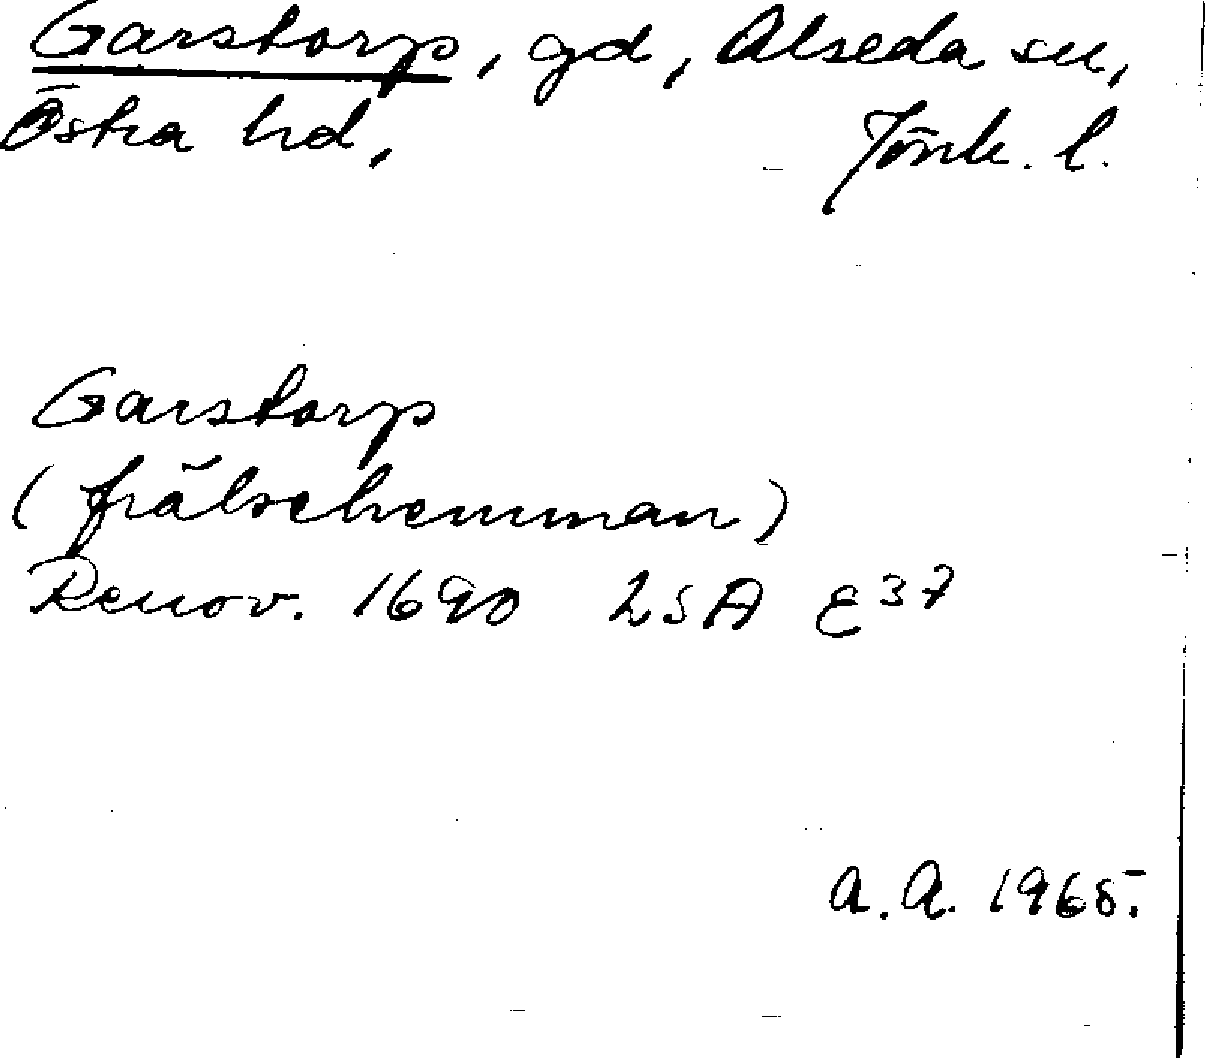 Garstorp, gd, Alseda sn,
Östra hd, Jönk. l.
Garstorp
(frälsehemman)
Renov. 1690 LSA E37
A.A. 1965.